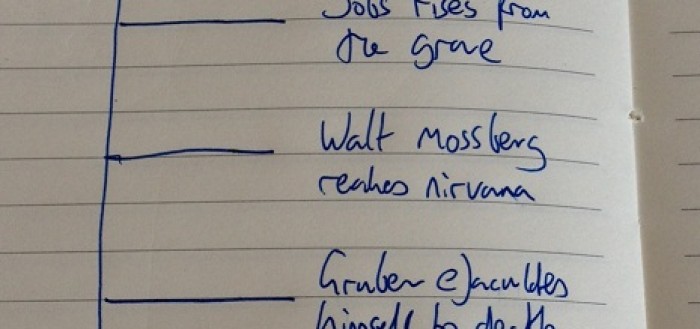 Jobs rises from
the grave
Walt Mossberg
reaches nirvana
Gruber ejaculates
himself to death